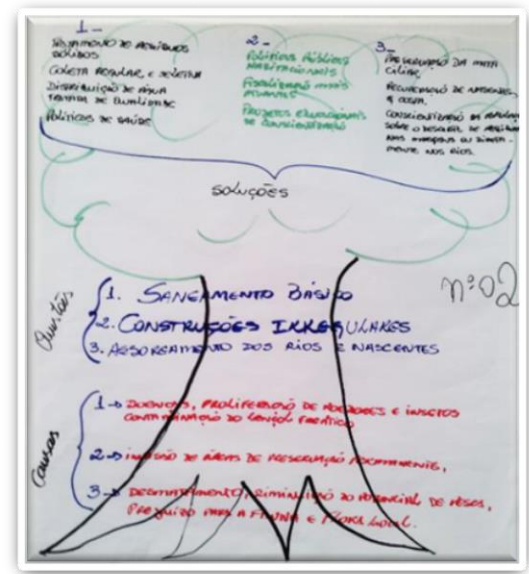 1-
TRATAMENTO DE RESÍDUOS
SÓLIDOS
COLETA REGULAR, E SELETIVA
DISTRIBUIÇÃO DE ÁGUA
TRATADA DE QUALIDADE
POLÍTICAS DE SAÚDE
2-
POLÍTICAS PÚBLICAS
HABITACIONAIS
FISCALIZAÇÃO MAIS
ATUANTES
PROJETOS EDUCACIONAIS
DE CONSCIENTIZAÇÃO
3-
PRESERVAÇÃO DA MATA
CILIAR,
DE NASCENTES,
CONSCIENTIZAÇÃO DA POPULAÇÃO
SOBRE O DESCARTE DE RESÍDUOS
NAS MARGENS OU DIRETA-
MENTE NOS RIOS.
SOLUÇÕES
nº 02
Questões
1. SANEAMENTO BÁSICO
2. CONSTRUÇÕES IRREGULARES
3. ASSOREAMENTO DOS RIOS E NASCENTES
Causas
1-> DOENÇAS, PROLIFERAÇÃO DE ROEDORES E INSETOS
CONTAMINAÇÃO DO LENÇOL FREÁTICO
2-> INVASÃO DE ÁREAS DE PRESERVAÇÃO PERMANENTE,
3-> DESMATAMENTO, DIMINUIÇÃO DO POTENCIAL DE PEIXES,
PREJUÍZO PARA A FAUNA E FLORA LOCAL.